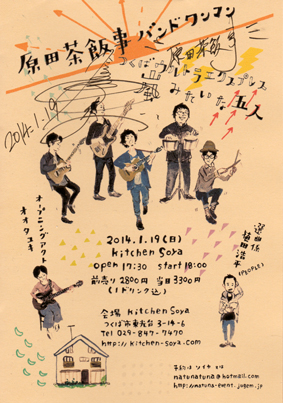 原田茶飯事バンドワンマン
つくばウルトラエクスプレス
みたいな五人
2014.1.19
オープニングアクト
オオタユキ
2014.1.19(日)
Kitchen Soya
open 17:30 start 18:00
前売り 2800円 当日 3300円
(1ドリンク込)
選曲係
(PEOPLE)
会場 Kitchen Soya
つくば市東新台3-14-6
Tel 029-847-7470
http://kitchen-soya.com
natunatuna@hotmail.com
http://natuna-event.jugem.jp